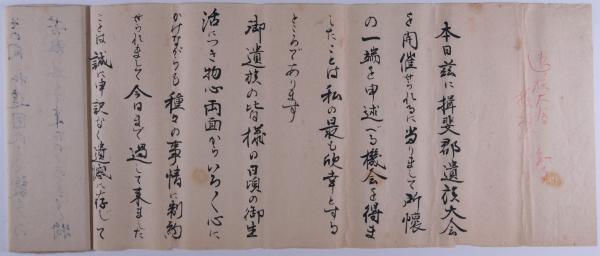 遺族大会
本日茲に揖斐郡遺族大会
を開催せられるに当りまして所懐
の一端を申述べる機会を得ま
したことは私の最も欣幸とする
ところであります
御遺族の皆様の日頃の御生
活につき物心両面からいろ〱心に
かけながらも種々の事情に制約
せられまして今日まで過して来ました
ことは誠に申訳なく遺憾に存じて